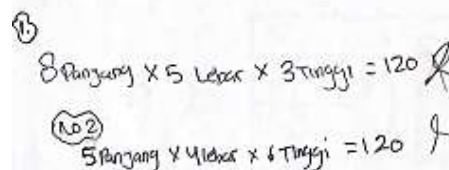 1.
8 Panjang X 5 Lebar X 3 Tinggi = 120
NO 2
5 Panjang X 4 lebar X 6 Tinggi = 120